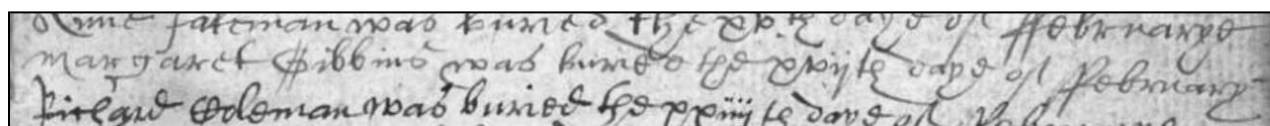 Anne Fateman was buried the xvth daye of ffebruarye
Margaret Gibbins was buried the xviijth daye of ffebruary
Richard Coleman was buried the xxiiijth daye of ffebruarye